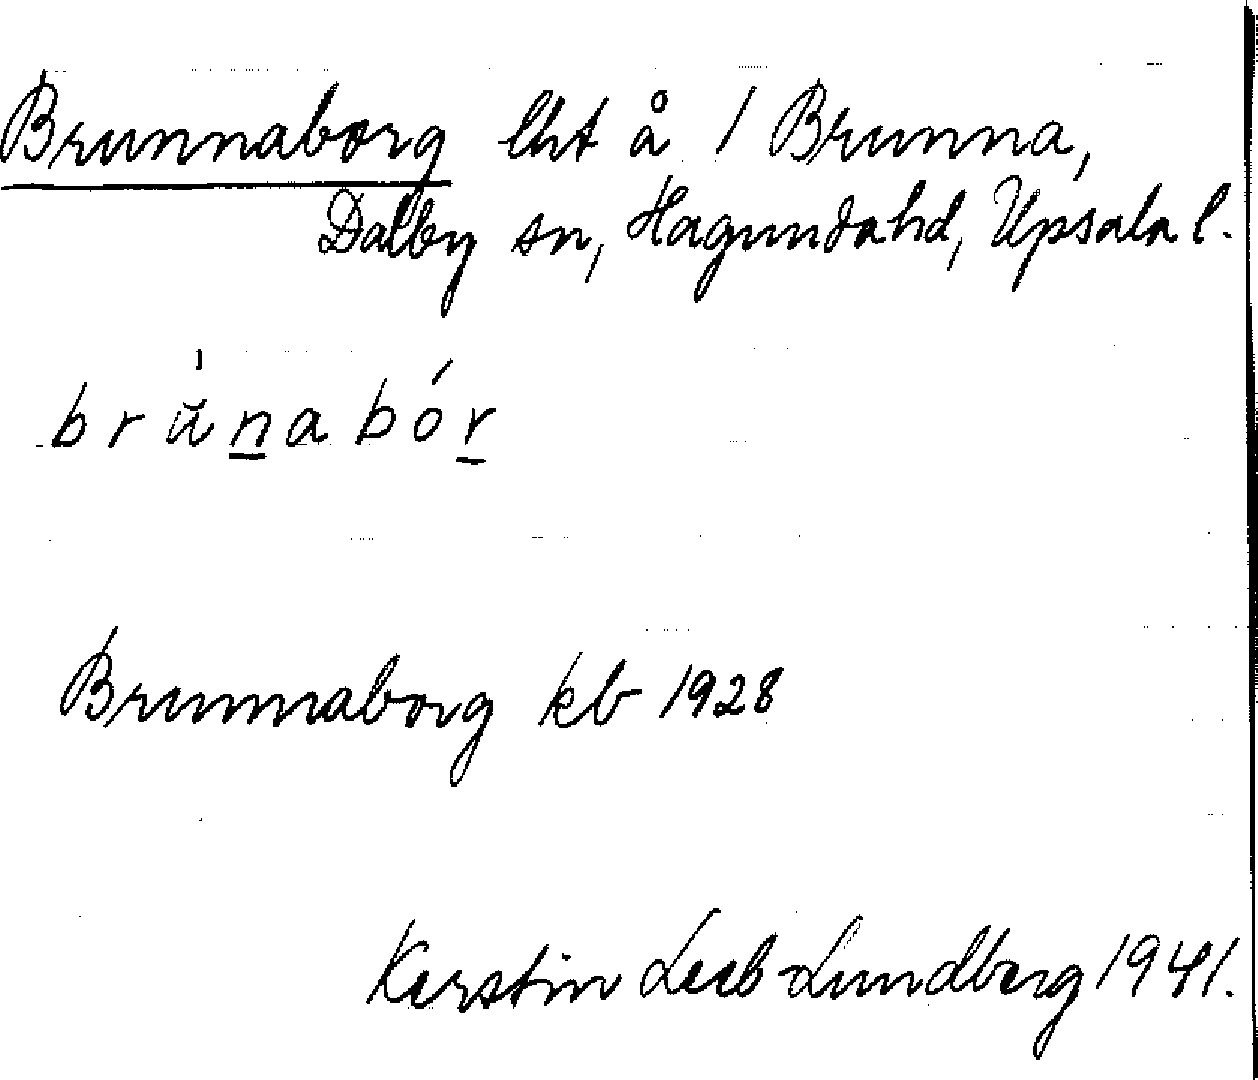 Brunnaborg lht å 1 Brunna,
Dalby sn, Hagundahd, Upsala l.
brùnabór
Brunnaborg kb 1928
Kerstin Leeb-Lundberg 1941.